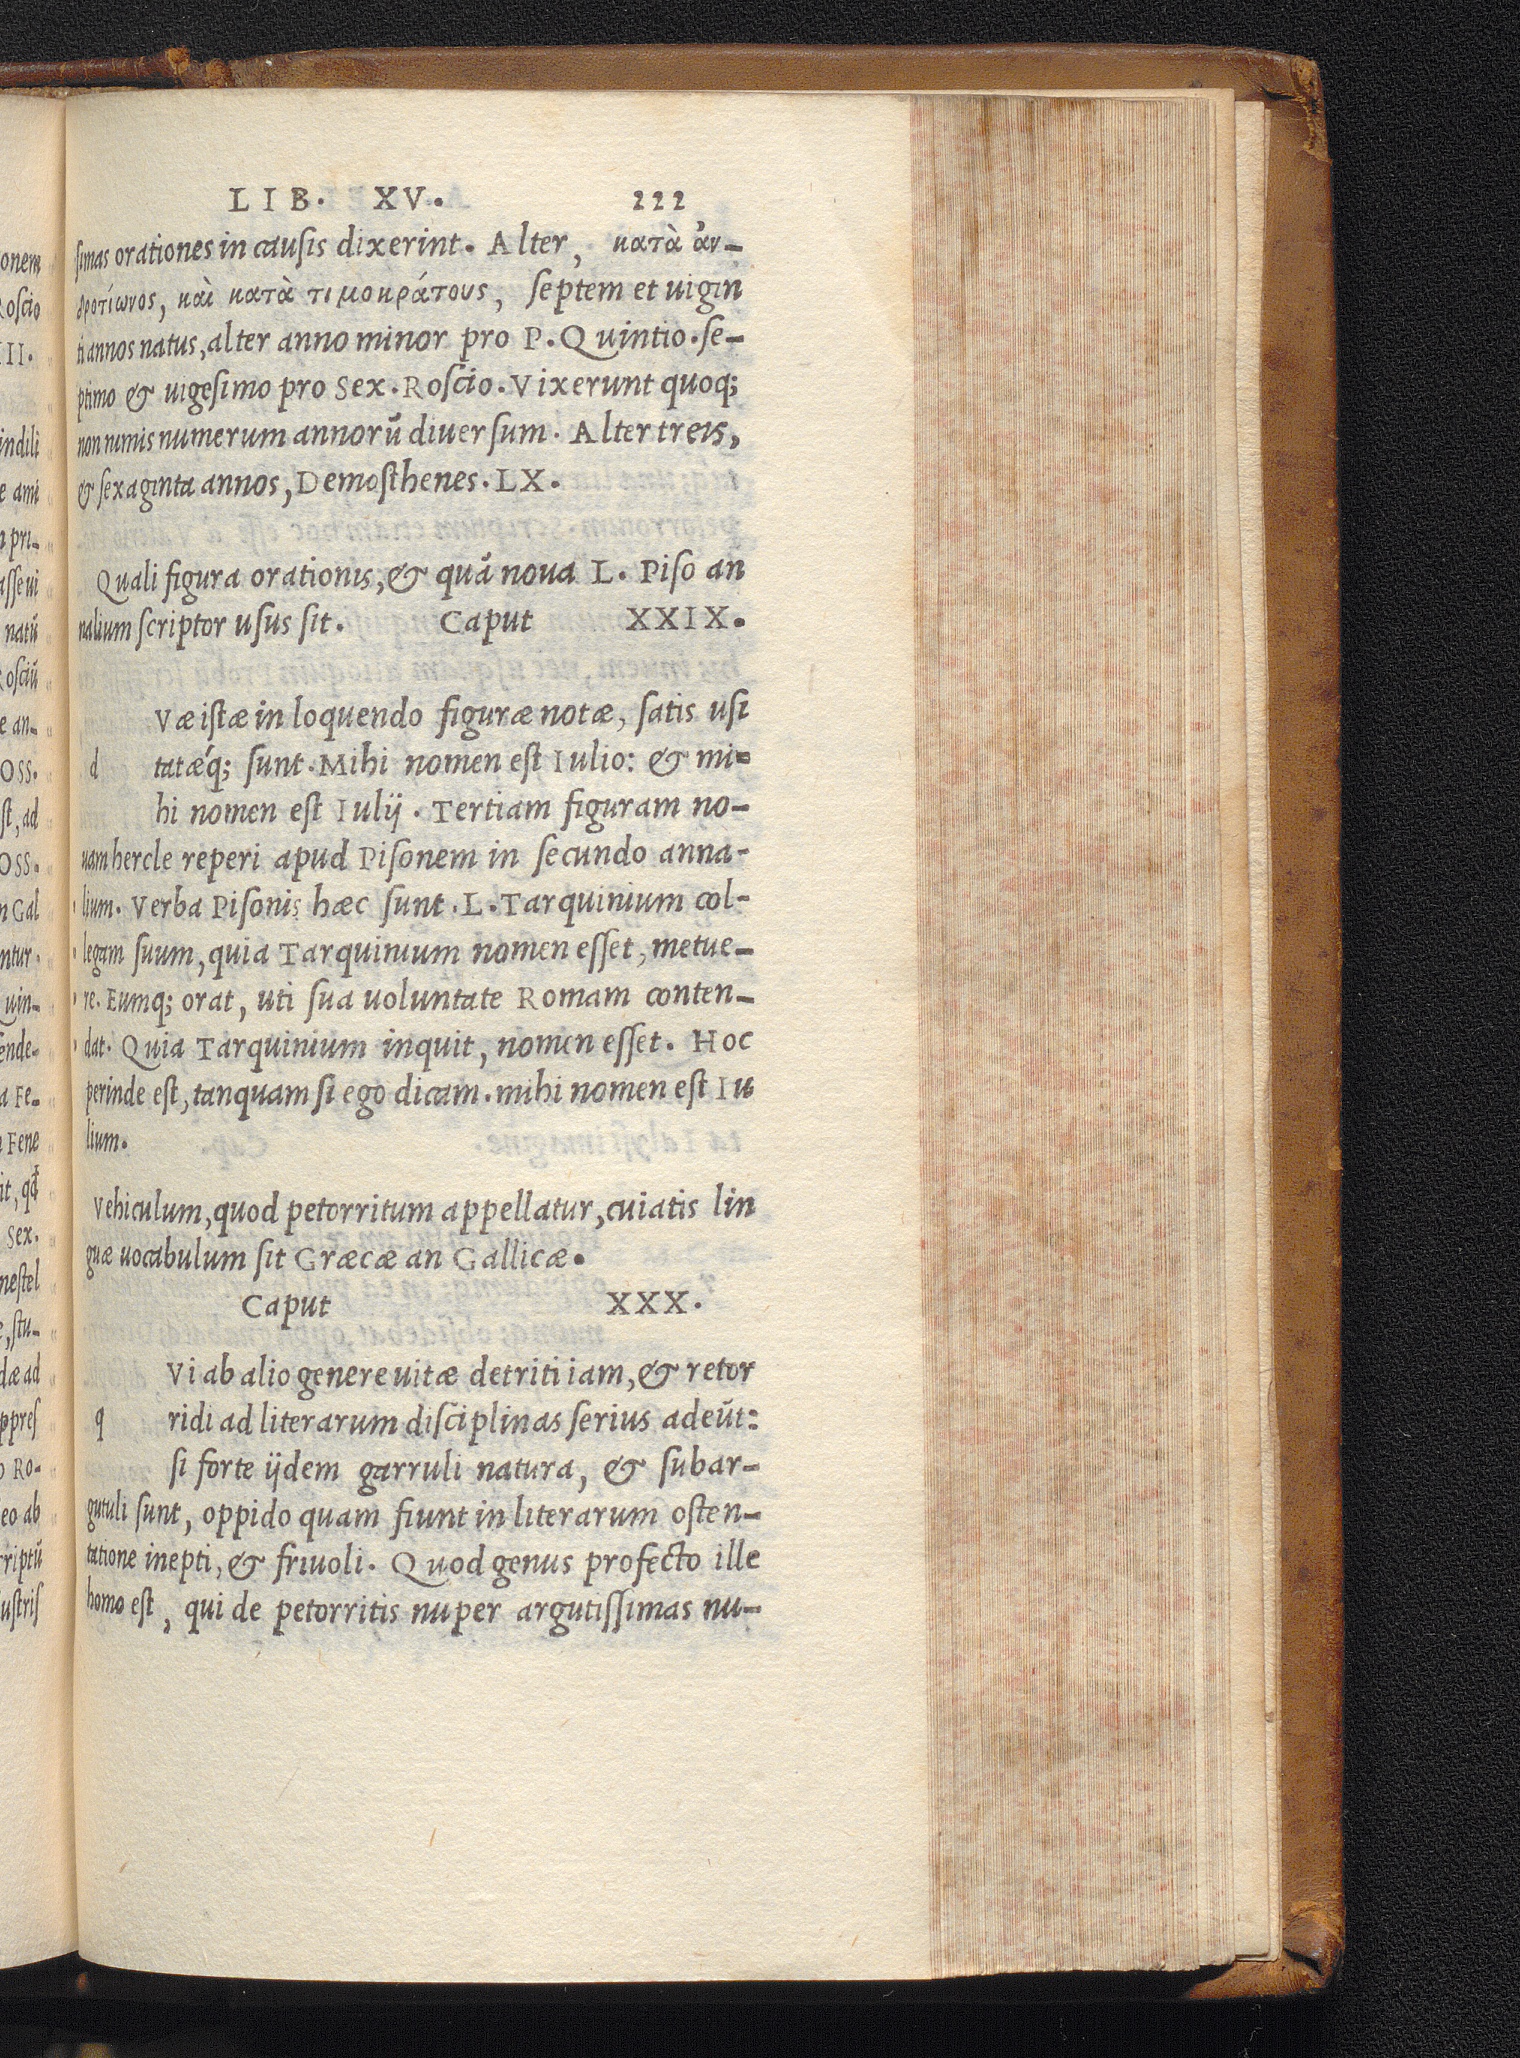 LIB. XV. 222
simas orationes in causis dixerint. Alter, κατὰ ἀν-
δροτίωνος, καὶ κατὰ τιμοκράτους, septem et uigin
ti annos natus, alter anno minor pro P. Quintio. se-
ptimo & uigesimo pro Sex. Roscio. Vixerunt quoq;
non nimis numerum annorū diuersum. Alter treis,
& sexaginta annos, Demosthenes. LX.
Quali figura orationis, & quā noua L. Piso an
nalium scriptor usus sit. Caput XXIX.
Væ istæ in loquendo figuræ notæ, satis usi
d tatæq́; sunt. Mihi nomen est Iulio: & mi-
hi nomen est Iulij. Tertiam figuram no-
uam hercle reperi apud Pisonem in secundo anna-
lium. Verba Pisonis hæc sunt. L. Tarquinium col-
legam suum, quia Tarquinium nomen esset, metue-
re. Eumq; orat, uti sua uoluntate Romam conten-
dat. Quia Tarquinium inquit, nomen esset. Hoc
perinde est, tanquam si ego dicam. mihi nomen est Iu
lium.
Vehiculum, quod petorritum appellatur, cuiatis lin
guæ uocabulum sit Græcæ an Gallicæ.
Caput XXX.
Vi ab alio genere uitæ detriti iam, & retor
q ridi ad literarum disciplinas serius adeūt:
si forte ijdem garruli natura, & subar-
gutuli sunt, oppido quam fiunt in literarum osten-
tatione inepti, & friuoli. Quod genus profecto ille
homo est, qui de petorritis nuper argutissimas nu-